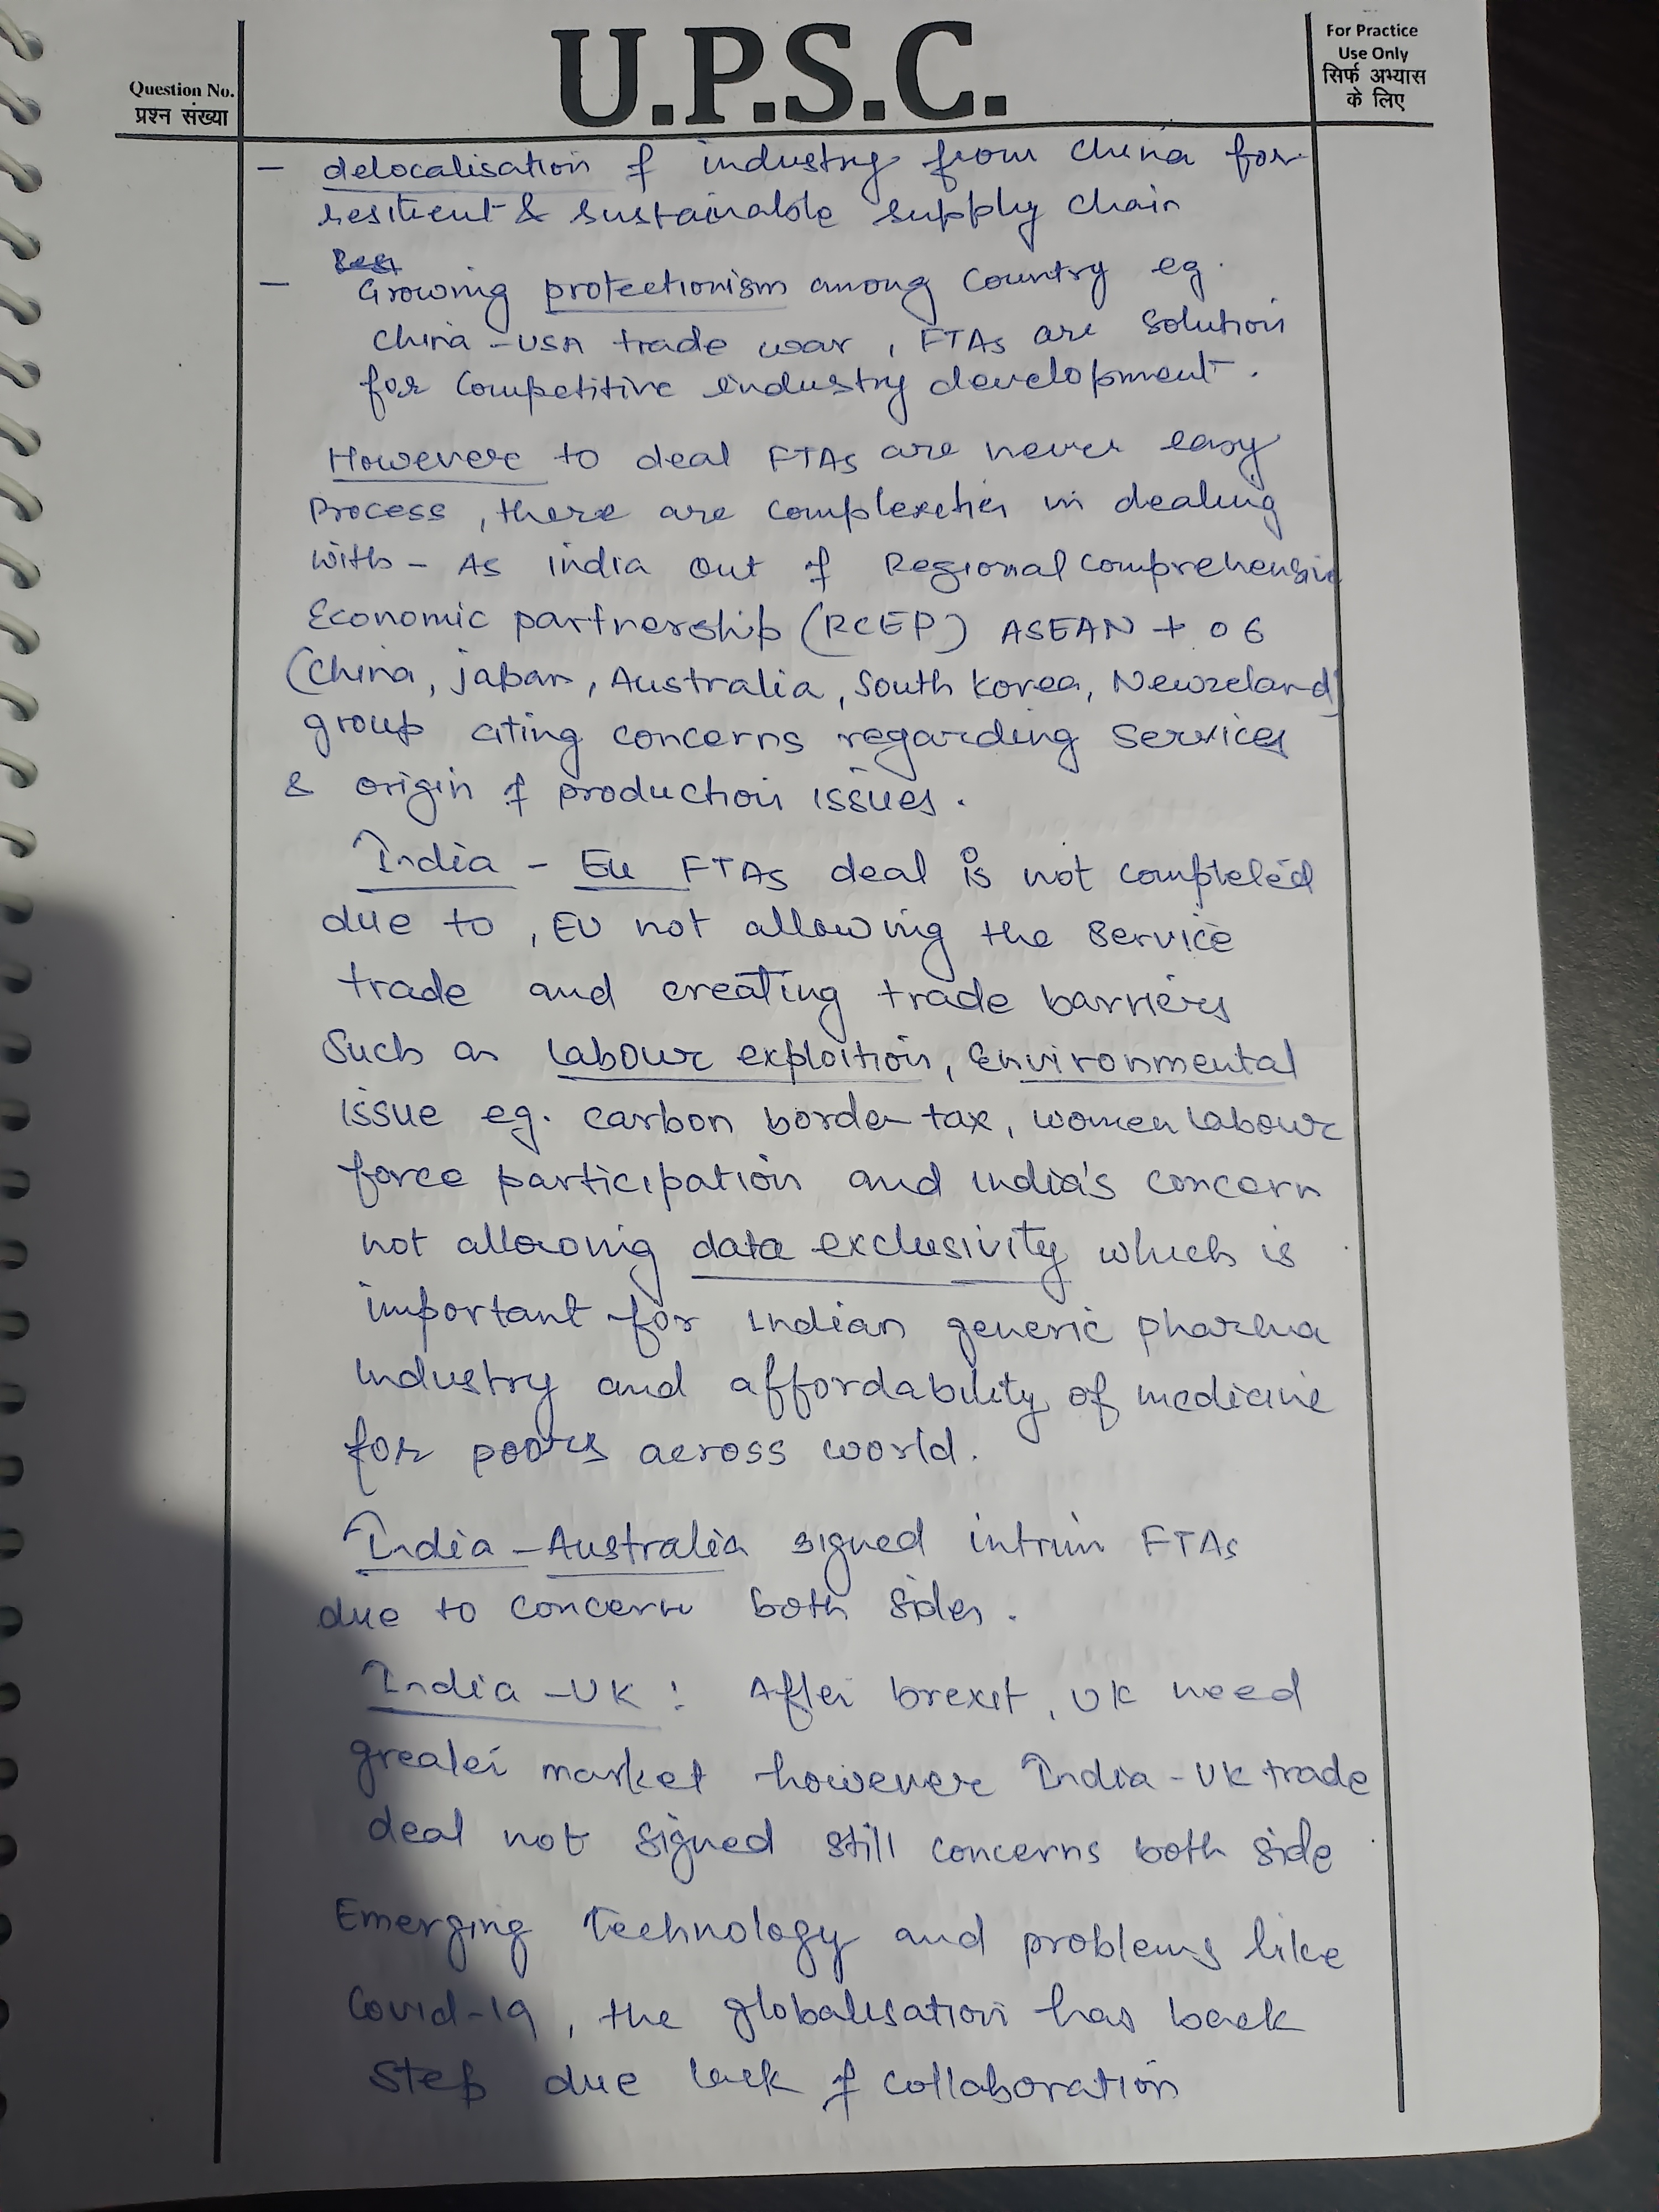 U.P.S.C.
Question No.
प्रश्न संख्या
For Practice
Use Only
सिर्फ अभ्यास
के लिए
- delocalisation of industry from China for
resilient & sustainable supply chain
- Growing protectionism among Country eg.
China - USA trade war, FTAs are solution
for Competitive industry development.
However to deal FTAs are never easy
Process, there are complexities in dealing
with - As india out of Regional Comprehensive
Economic partnership (RCEP) ASEAN + 06
(China, Japan, Australia, South Korea, Newzeland)
group citing concerns regarding services
& origin of production issues.
India - EU FTAs deal is not completed
due to, EU not allowing the service
trade and creating trade barriers
Such as labour exploition, Environmental
issue eg. carbon border tax, women labour
force participation and india's concern
not allowing data exclusivity which is
important for Indian generic pharma
industry and affordability of medicine
for poors across world.
India - Australia signed intrim FTAs
due to concern both sides.
India - UK : After brexit, UK need
greater market however India - UK trade
deal not signed still concerns both side
Emerging Technology and problems like
Covid-19, the globalisation has back
step due lack of collaboration